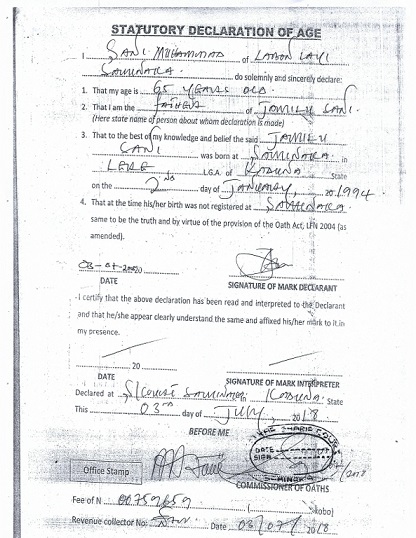 STATUTORY DECLARATION OF AGE
I SANI MUHAMMAD of LAYI
SAMINAKA do solemnly and sincerely declare:
1. That my age is 65 YEARS OLD
2. That I am the FATHER of JAMILU SANI.
(Here state name of person about whom declaration is made)
3. That to the best of my knowledge and belief the said JAMILU
SANI was born at SAMINAKA in
LERE L.G.A. of KADUNA State
on the 2ND day of JANUARY, 1994
4. That at the time his/her birth was not registered at SAMINAKA
same to be the truth and by virtue of the provision of the Oath Act, LFN 2004 (as
amended).
DATE
SIGNATURE OF MARK DECLARANT
I certify that the above declaration has been read and interpreted to the Declarant
and that he/she appear clearly understand the same and affixed his/her mark to it in
my presence.
20
DATE
SIGNATURE OF MARK INTERPRETER
Declared at S/COURT SAMINAKA in KADUNA State
This 03RD day of JULY, 2018
BEFORE ME
DATE
SIGN
Office Stamp
COMMISSIONER OF OATHS
Fee of N (kobo)
Revenue collector No: Date 03/07/2018